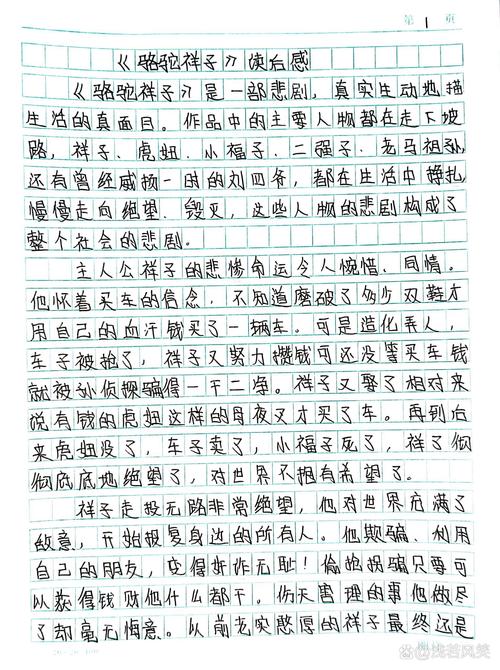 第 1 页
《骆驼祥子》读后感
《骆驼祥子》是一部悲剧，真实生动地描
生活的真面目。作品中的主要人物都在走下坡
路，祥子、虎妞、小福子、二强子、老马祖孙
还有曾经威扬一时的刘四爷，都在生活中挣扎
慢慢走向绝望、毁灭，这些人物的悲剧构成了
整个社会的悲剧。
主人公祥子的悲惨命运令人惋惜、同情。
他怀着买车的信念，不知道磨破了多少双鞋才
用自己的血汗钱买了一辆车。可是造化弄人，
车子被抢了，祥子又努力攒钱可还没等买车钱
就被孙侦探骗得一干二净。祥子又娶了相对来
说有钱的虎妞这样的母夜叉才买了车。再到后
来虎妞没了，车子卖了，小福子死了，祥子彻
彻底底地绝望了，对世界不拥有希望了。
祥子走投无路非常绝望，他对世界充满了
敌意，开始报复身边的所有人。他欺骗、利用
自己的朋友，变得奸诈无耻！偷抢拐骗只要可
以获得钱财他什么都干。伤天害理的事他做尽
了却毫无悔意。以前老实憨厚的祥子最终还是
20×20=400
浅若风笑